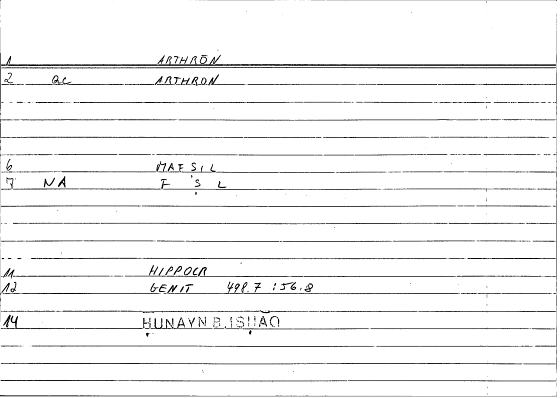 1 ARTHRŌN
2 QC ARTHRON
6 MAFṢIL
7 NA F Ṣ L
11 HIPPOCR
12 GENIT 498.7 : 56.8
14 ḤUNAYN B. ISḤĀQ